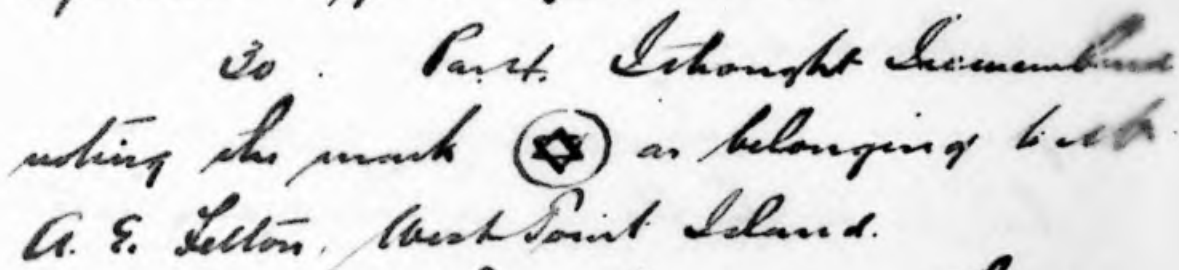 30. Part. I thought I remembered
noting the mark ✡ as belonging to Mr
A. E. Felton, West Point Island.